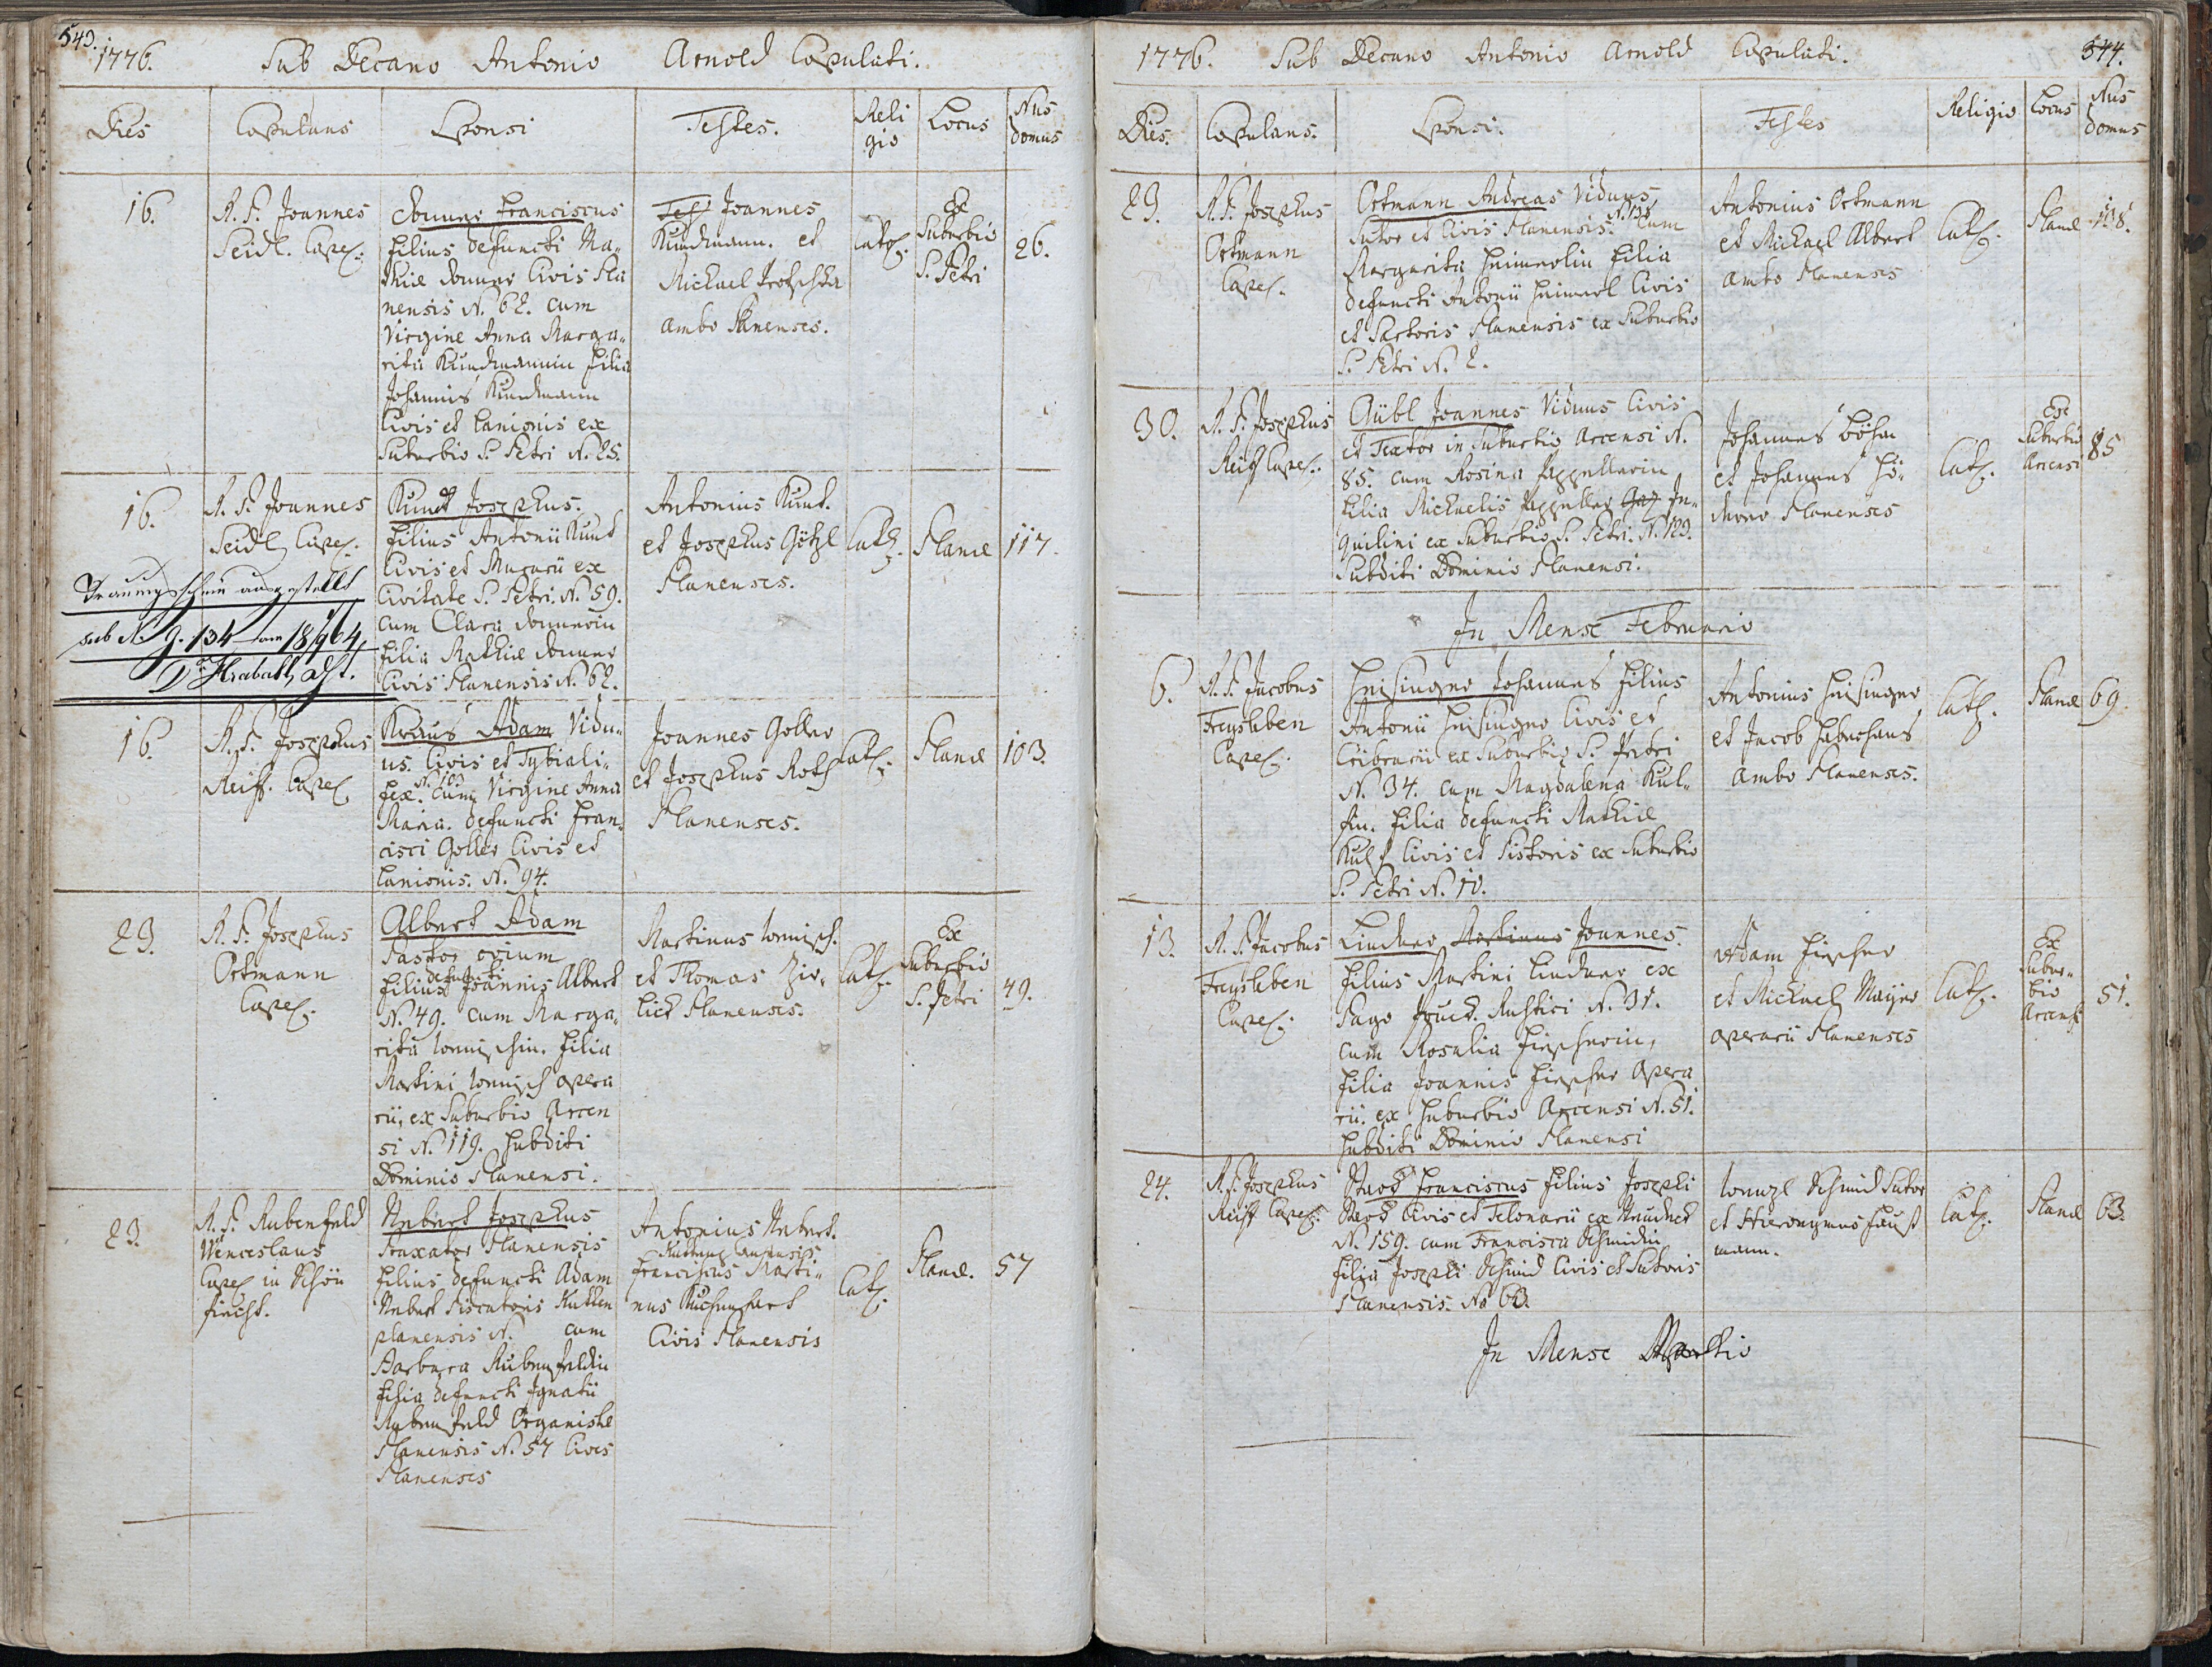 543.
1776. Sub Decano Antonio Arnold Copulati.
Dies Copulans Sponsi Testes. Reli Locus Nus
gio domus
16.
R. P. Joannes
Seidl. Capel.
Franciscus
filius defuncti Ma„
thiæ Civis Pla
nensis N. 62. cum
Virgine Anna Marga„
rita Kundmannin filia
Johannis Kundmann
Civis et Lanionis ex
Suburbio S. Petri N. 25.
Joannes
Kundmann. et
Michael
ambo Planenses.
Cath.
Ex
Suburbio
S. Petri
26.
16.
R. P. Joannes
Seidl, Capel.
Trauungsschein ausgestellt
sub N. 134 am 18/9 64,
Kundt Josephus.
filius Antonii Kunt
Civis et Murarii ex
Civitate S. Petri. N. 59.
cum Clara
filia Mathiæ
Civis Planensis N. 62.
Antonius Kunt.
et Josephus Götzl
Planenses.
Cath.
Planæ
117.
16.
R. P. Josephus
Reiff. Capel.
Kraus Adam Vidu„
us. Civis et Tybiali„
fex. N. 103 cum Virgine Anna
Maria. defuncti Fran„
cisci Goller Civis et
Lanionis. N. 94.
Joannes Goller
et Josephus Roth
Planenses.
Cath.
Planæ
103.
23.
R. P. Josephus
Ortmann
Capel.
Albert Adam
Pastor ovium
filius defuncti Joannis Albert
N. 49. cum Marga„
rita filia
Martini opera
rii, ex Suburbio Arcen
si N. 119. Subditi
Dominio Planensi.
Martinus
et Thomas
Planenses.
Cath.
Ex
Suburbio
S. Petri
49.
23.
R. P. Rubenfeld
Wenceslaus
Capel. in Schön
ficht.
Josephus
Planensis
filius defuncti Adam
Piscatoris Kutten
planensis N. cum
Barbara Rubenfeldin
filia defuncti Ignatii
Rubenfeld Organistæ
Planensis N. 57 Cives
Planenses
Antonius
Kuttenplanensis
Franciscus Marti„
nus
Civis Planensis
Cath.
Planæ.
57
1776. Sub Decano Antonio Arnold Copulati. 544.
Dies. Copulans. Sponsi. Testes Religio Locus Nus
domus
23.
R. P. Josephus
Ortmann
Capel.
Ortmann Andreas Viduus
Sutor et Civis Planensis. N. 138 cum
Margarita Heimerlin filia
defuncti Antonii Heimerl Civis
et Sartoris Planensis ex Suburbio
S. Petri N. 2.
Antonius Ortmann
et Michael Albert
ambo Planenses
Cath.
Planæ
138.
30.
R. P. Josephus
Reiff Capel.
Gübl Joannes Viduus Civis
et Textor in Suburbio Arcensi N.
85. cum Rosina
filia Michaelis In„
quilini ex Suburbio S. Petri. N. 129.
Subditi Dominio Planensi.
Johannes Böhm
et Johannes
Planenses
Cath.
Ex
Suburbio
Arcensi
85
In Mense Februario
6.
R. P. Jacobus
Freysleben
Capel.
Heisinger Johannes filius
Antonii Heisinger Civis et
Cribrarii ex Suburbio S. Petri
N. 34. cum Magdalena Kul„
fin. filia defuncti Mathiæ
Kulf Civis et Pistoris ex Suburbio
S. Petri N. 10.
Antonius Heisinger
et Jacob
ambo Planenses.
Cath.
Planæ
69
13.
R. P. Jacobus
Freysleben
Capel.
Lindner Martinus Joannes.
filius Martini Lindner ex
Pago Rustici N. 31.
cum Rosalia Fischerin,
filia Joannis Fischer Opera
rii. ex Suburbio Arcensi N. 51.
Subditi Dominio Planensi
Adam Fischer
et Michael Mayer
operarii Planenses
Cath.
Ex
Subur„
bio
Arcensi
51.
24.
R. P. Josephus
Reiff Capel.
Franciscus filius Josephi
Civis et Telonarii ex
N. 159. cum Francisca Schmidin
filia Josephi Schmid Civis et Sutoris
Planensis. No 63.
Wenzl Schmid Sutor
et Hieronymus Hauß
mann.
Cath.
Planæ
63.
In Mense Martio